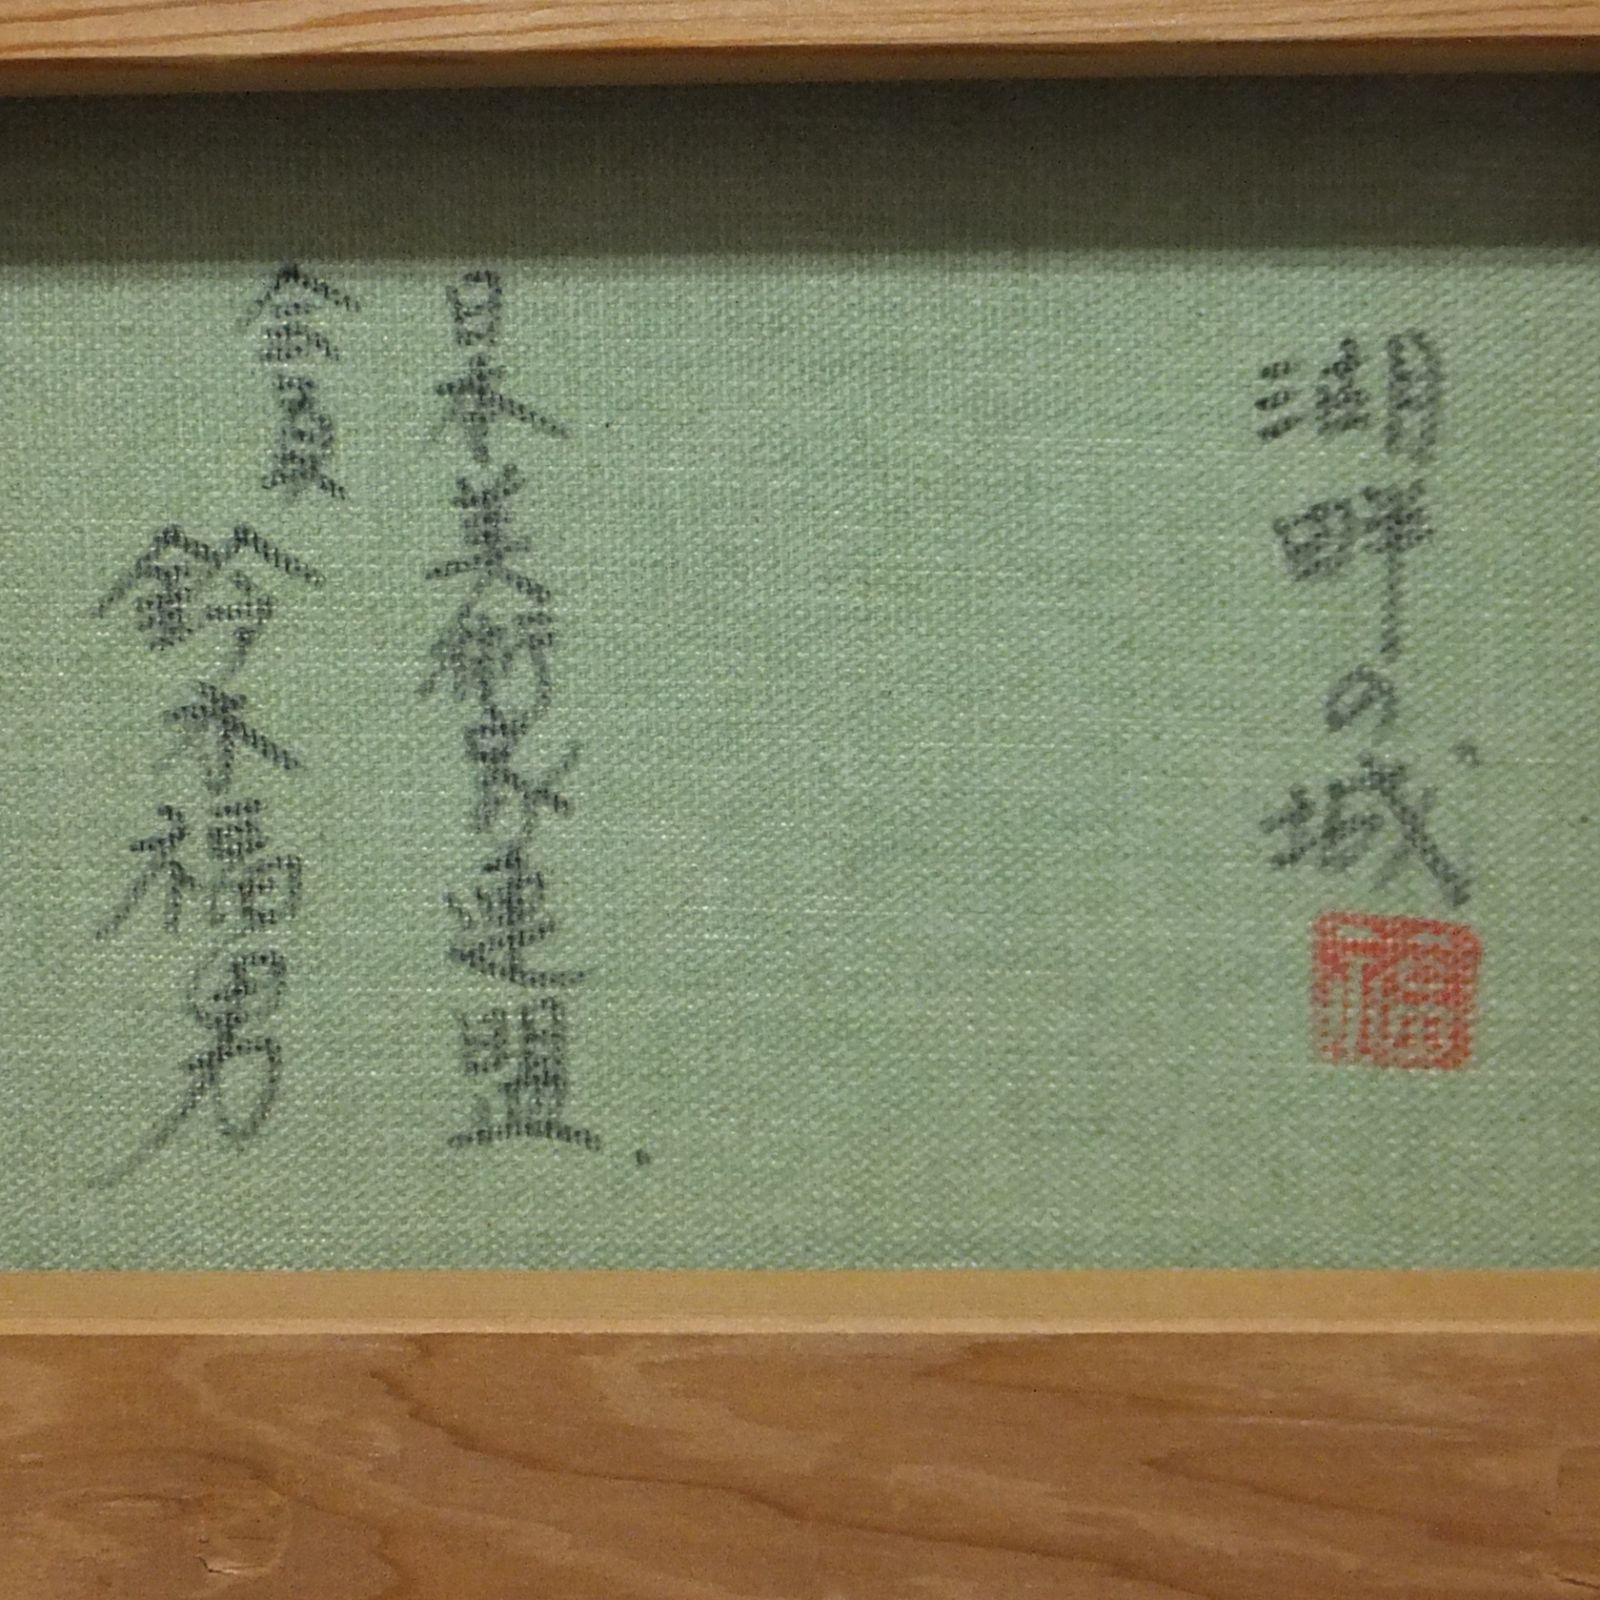 湖畔の城
福
日本美術家連盟
会員 鈴木福男